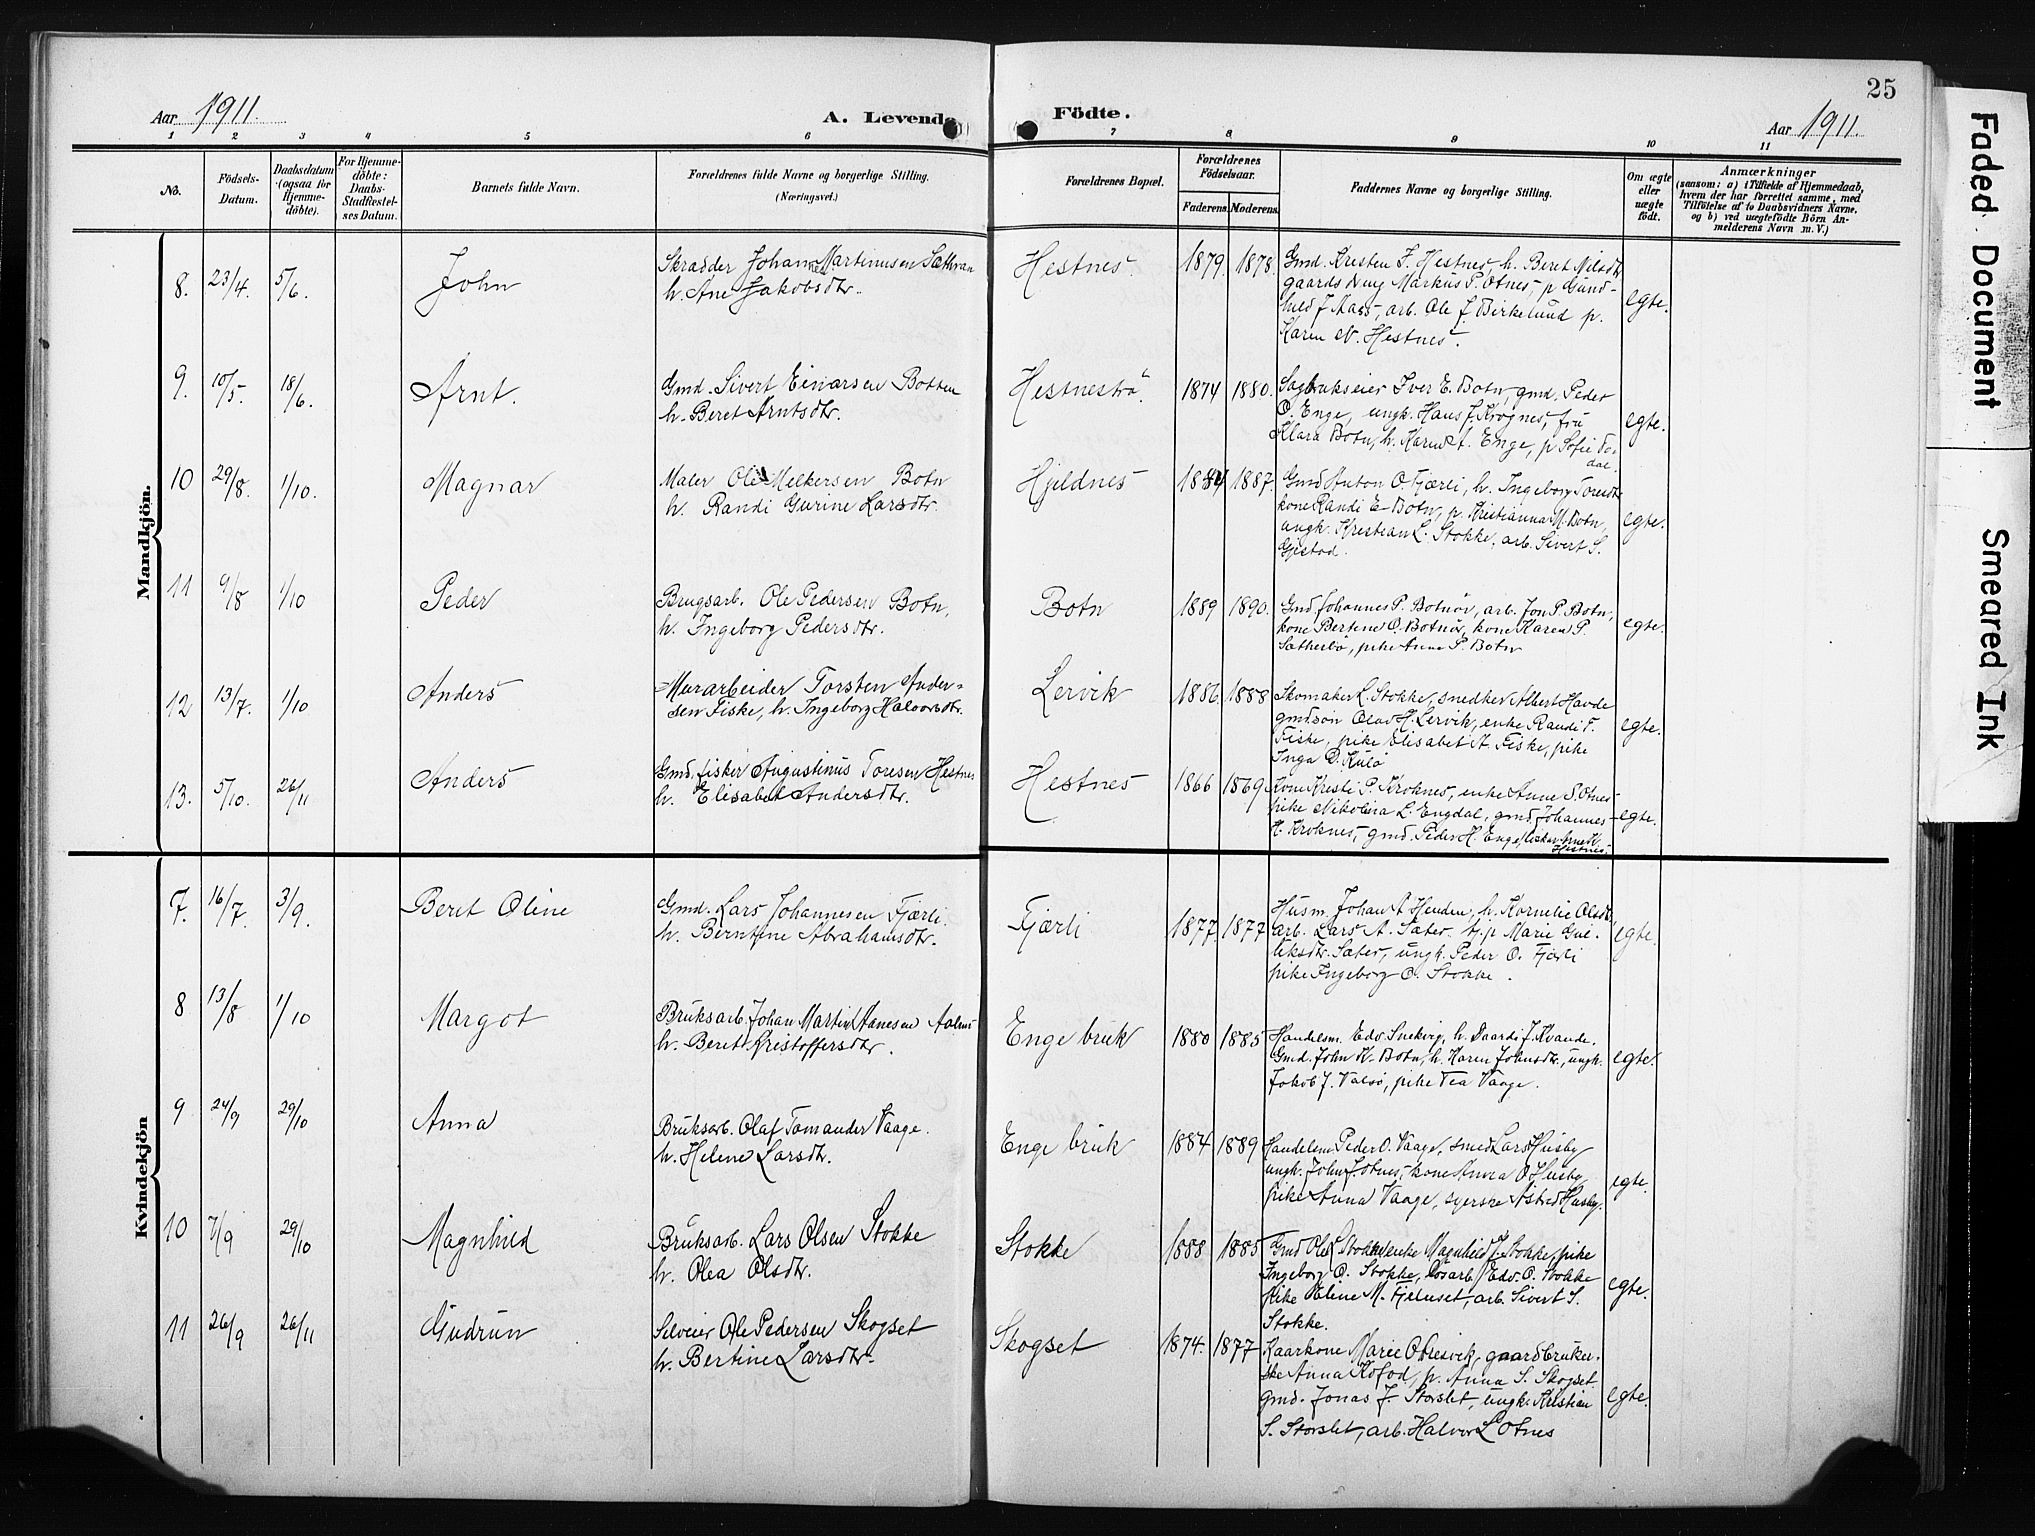 25
Aar 1911.
A. Levende
Födte.
Aar 1911.
1 2 3 4 5 6 7 8 9 10 11
No.
Födsels-
Datum.
Daabsdatum
(ogsaa for
Hjemme-
döbte).
For Hjemme-
döbte:
Daabs-
Stadfæstel-
ses Datum.
Barnets fulde Navn.
Forældrenes fulde Navne og borgerlige Stilling.
(Næringsvei.)
Forældrenes Bopæl.
Forældrenes
Födselsaar.
Faderens. Moderens.
Faddernes Navne og borgerlige Stilling.
Om ægte
eller
uægte
födt.
Anmærkninger
(saasom: a) i Tilfælde af Hjemmedaab,
hvem der har forrettet samme, med
Tilföielse af to Daabsvidners Navne,
og b) ved uægtefödte Börn An-
melderens Navn m. V.)
Mandkjön.
8. 23/4. 5/6. John
Skrædder Johan Martinusen Sæthran
h. Ane Jakobsdtr.
Hestnes. 1879. 1878.
Gmd. Kristen J. Hestnes, h. Beret Nilsdtr
gaardsdreng Markus P. Otnes, p Gund-
hild J Aass, arb. Ole J. Birkelund p.
Karen N. Hestnes.
egte.
9. 10/5. 18/6. Arnt.
Gmd. Sivert Einarsen Botten
h. Beret Arntsdtr.
Hestneströ. 1874 1880.
Sagbrukseier Iver E. Botn, gmd. Peder
O. Enge, ungk. Hans J. Krognes, fru
Klara Botn, h. Karen A. Enge, p Sofie
egte.
10 29/8. 1/10. Magnar
Maler Ole Melkersen Botn
h. Randi Gurine Larsdtr.
Hjeldnes 1884 1887.
Gmd Anton O Fjærli, h. Ingeborg Toresdtr
kone Randi E. Botn, p. Kristianna M. Botn,
ungk. Kristian L. Stokke, arb. Sivert S.
Gjestad.
egte.
11 9/8 1/10 Peder
Brugsarb. Ole Pedersen Botn,
h. Ingeborg Pedersdtr.
Botn 1889 1890.
Gmd. Johannes P. Botnör, arb. Jon P. Botn,
kone Bertene O. Botnör, kone Karen P.
Sætherbö, pike Anne P. Botn
egte.
12 13/7. 1/10 Anders
Murarbeider Torsten Ander-
sen Fiske, h. Ingeborg Halvorsdtr.
Lervik 1886. 1888
Skomaker L. Stokke, snedker Albert Havde
gmdsön Olav H. Lervik, enke Randi T.
Fiske, pike Elisabet A. Fiske, pike
Inga D. Kulö
egte.
13. 5/10. 26/11 Anders
Gmd. fisker Augustinus Toresen Hestnes
h. Elisabet Andersdtr.
Hestnes 1866 1869
Kone Kristi P. Kroknes, enke Anne S. Otnes
pike Nikolina L. Engdal, gmd. Johannes
H. Kroknes, gmd. Peder H. Enge, fisker Arne K
Hestnes.
egte.
Kvindekjön
7. 16/7. 3/9. Beret Oline
Gmd. Lars Johannesen Fjærli
h. Berntine Abrahamsdtr.
Fjærli 1877 1877
Husm. Johan A Henden, h. Kornelie Olsdtr
arb. Lars A. Sæter. tj.p Marie Gul-
leiksdtr. Sæter, ungk. Peder O. Fjærli
pike Ingeborg O. Stokke.
egte.
8 13/8 1/10 Margot
Bruksarb. Johan Martin Hansen
h. Beret Kristoffersdtr.
Enge bruk 1880 1885
Handelsm. Edv. Snekvig, h. Daardi J. Kvande.
Gmd. John K. Botn, h. Karen Johnsdtr, ungk.
Jakob J. Valsö, pike Tea Vaage.
egte.
9 24/9 29/10 Anna
Bruksarb. Olaf Tomander Vaage.
h. Helene Larsdtr.
Enge bruk 1884 1889
Handelsm Peder O. Vaage, smed Lars Husby
ungk. John J. Otnes, kone Anna O Husby
pike Anna Vaage, syerske Astrid Husby.
egte.
10 7/9 29/10 Magnhild
Bruksarb. Lars Olsen Stokke
h. Olea Olsdtr.
Stokke 1888 1885
Gmd Ole L Stokke, enke Magnhild J. Stokke, pike
Ingeborg O. Stokke, Edv. O. Stokke
pike Eline M. Fjeluset, arb. Sivert S.
Stokke.
egte.
11 26/9 26/11 Gudrun
Selveier Ole Pedersen Skogset
h. Bertine Larsdtr.
Skogset 1874. 1877
Kaarkone Marie O Bresvik, gaardbruker-
ske Anna Kofod, p. Anna S. Skogset
gmd. Jonas J. Storslet, ungk. Kristian
S. Storslet, arb. Halvor L Otnes
egte.
Faded Document
Smeared Ink